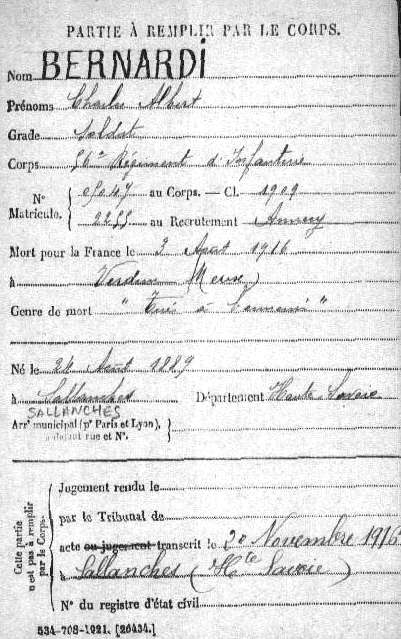 PARTIE À REMPLIR PAR LE CORPS.
Nom BERNARDI
Prénoms Charles Albert
Grade Soldat
Corps 56e Régiment d'Infanterie
N° Matricule. au Corps. — Cl. 1909
2255 au Recrutement Annecy
Mort pour la France le 3 Aout 1916
à Verdun (Meuse)
Genre de mort "Tué à l'ennemi"
Né le Aout 1889
à Sallanches Département Haute Savoie
SALLANCHES
Arr^t municipal (p^r Paris et Lyon),
à défaut rue et N°.
Cette partie n'est pas à remplir par le Corps.
Jugement rendu le
par le Tribunal de
acte ou jugement transcrit le 20 Novembre 1916
à Sallanches (Hte Savoie)
N° du registre d'état civil
534-708-1921. [26434.]